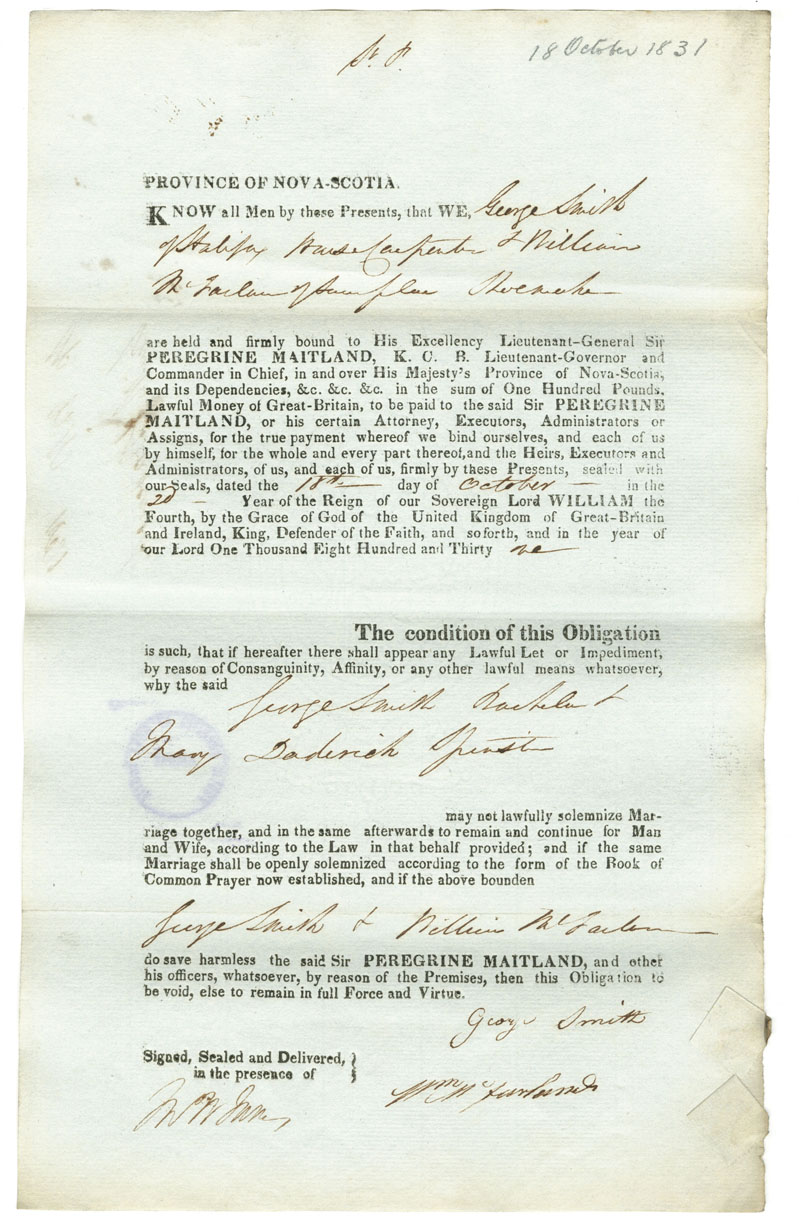 St. P.
18 October 1831
PROVINCE OF NOVA-SCOTIA.
KNOW all Men by these Presents, that WE, George Smith
of Halifax House Carpenter & William
McFarlan of same place Shoemaker
are held and firmly bound to His Excellency Lieutenant-General Sir
PEREGRINE MAITLAND, K. C. B. Lieutenant-Governor and
Commander in Chief, in and over His Majesty's Province of Nova-Scotia,
and its Dependencies, &c. &c. &c. in the sum of One Hundred Pounds,
Lawful Money of Great-Britain, to be paid to the said Sir PEREGRINE
MAITLAND, or his certain Attorney, Executors, Administrators or
Assigns, for the true payment whereof we bind ourselves, and each of us
by himself, for the whole and every part thereof, and the Heirs, Executors and
Administrators, of us, and each of us, firmly by these Presents, sealed with
our Seals, dated the 18th day of October in the
2d Year of the Reign of our Sovereign Lord WILLIAM the
Fourth, by the Grace of God of the United Kingdom of Great-Britain
and Ireland, King, Defender of the Faith, and soforth, and in the year of
our Lord One Thousand Eight Hundred and Thirty one
The condition of this Obligation
is such, that if hereafter there shall appear any Lawful Let or Impediment,
by reason of Consanguinity, Affinity, or any other lawful means whatsoever,
why the said
George Smith Bachelor &
Mary Doderick Spinster
may not lawfully solemnize Mar-
riage together, and in the same afterwards to remain and continue for Man
and Wife, according to the Law in that behalf provided; and if the same
Marriage shall be openly solemnized according to the form of the Book of
Common Prayer now established, and if the above bounden
George Smith & William McFarlan
do save harmless the said Sir PEREGRINE MAITLAND, and other
his officers, whatsoever, by reason of the Premises, then this Obligation to
be void, else to remain in full Force and Virtue.
George Smith
Signed, Sealed and Delivered, }
in the presence of }
Wm McFarland